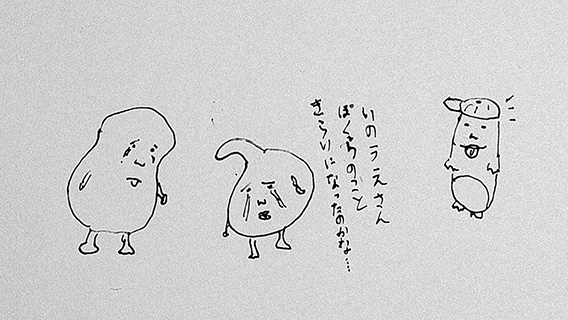 いのうえさん
ぼくたちのこと
きらいになったのかな…